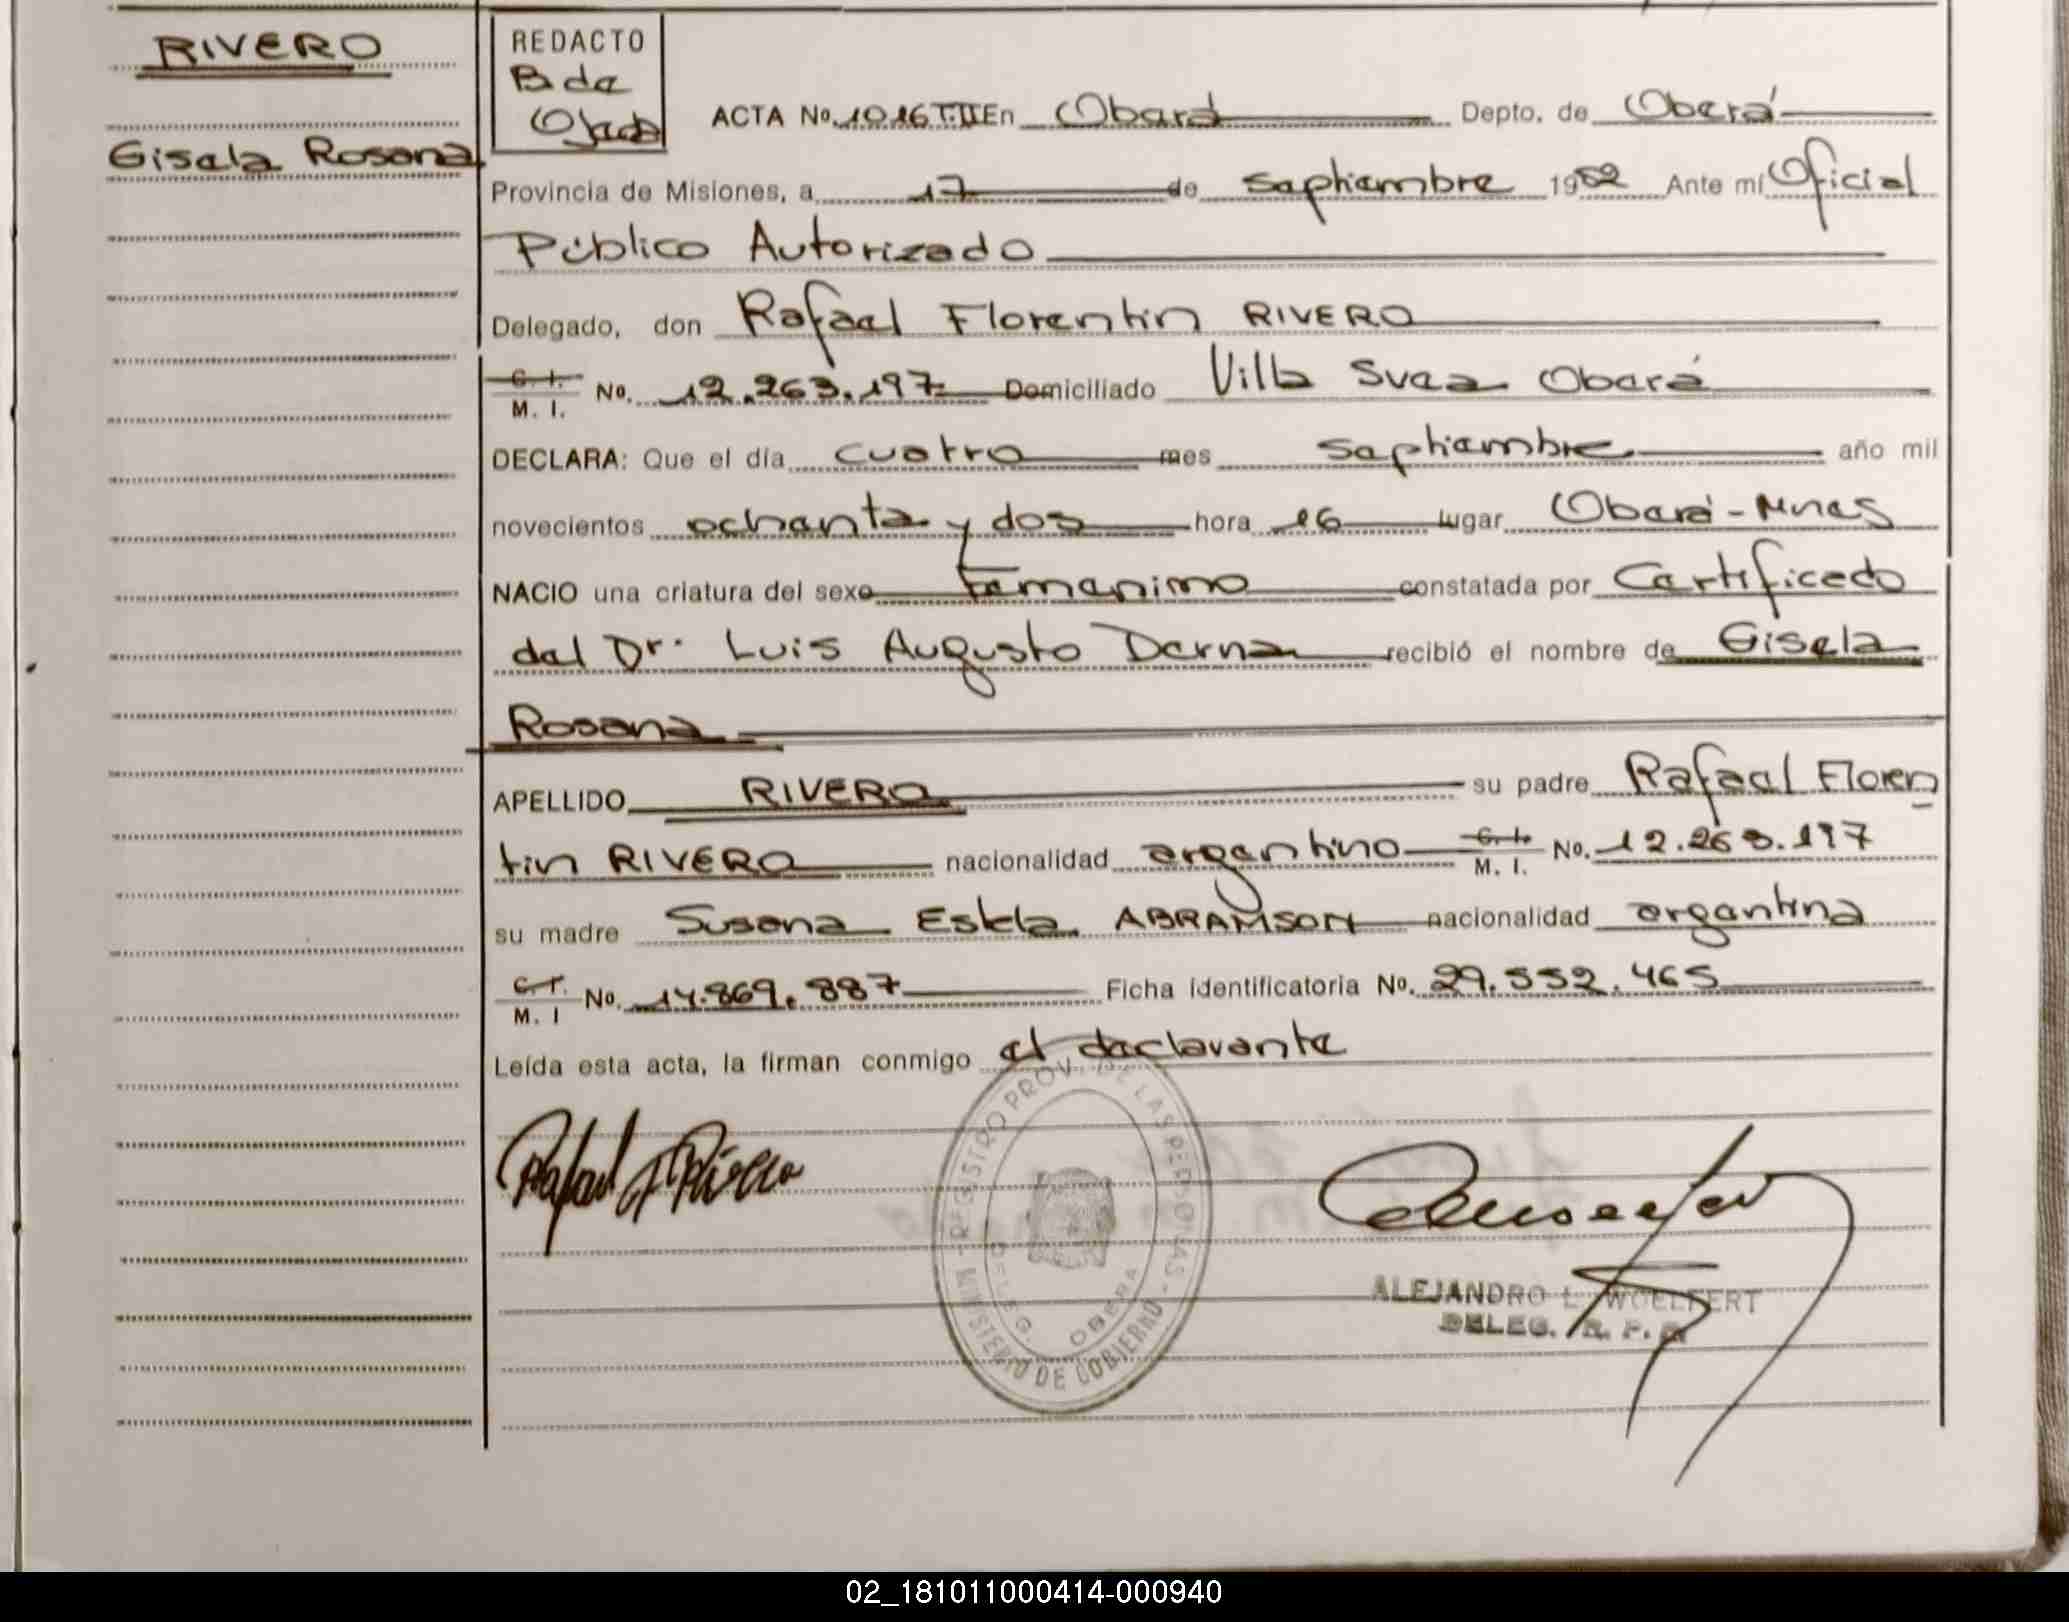 RIVERO
Gisela Rosana
REDACTO
B de
Ojeda
ACTA No. 1016 T.II En Oberá Depto. de Oberá
Provincia de Misiones, a 17 de septiembre 1982 Ante mí Oficial
Público Autorizado
Delegado, don Rafael Florentin RIVERO
C. I. M. I. No. 12.263.197 Domiciliado Villa Svea Oberá
DECLARA: Que el día cuatro mes septiembre año mil
novecientos ochenta y dos hora 16 lugar Oberá - Mnes
NACIO una criatura del sexo femenino constatada por Certificado
del Dr. Luis Augusto Derna recibió el nombre de Gisela
Rosana
APELLIDO RIVERO su padre Rafael Floren
tin RIVERO nacionalidad argentino C. I. M. I. No. 12.263.197
su madre Susana Estela ABRAMSON nacionalidad argentina
C. I. M. I No. 14.869.887 Ficha identificatoria No. 29.552.465
Leída esta acta, la firman conmigo el declarante
Rafael F Rivero
REGISTRO PROV. DE LAS PERSONAS - MINISTERIO DE GOBIERNO -
DELEG. OBERA
ALEJANDRO L. WOELFERT
DELEG. R. P. P.
02_181011000414-000940